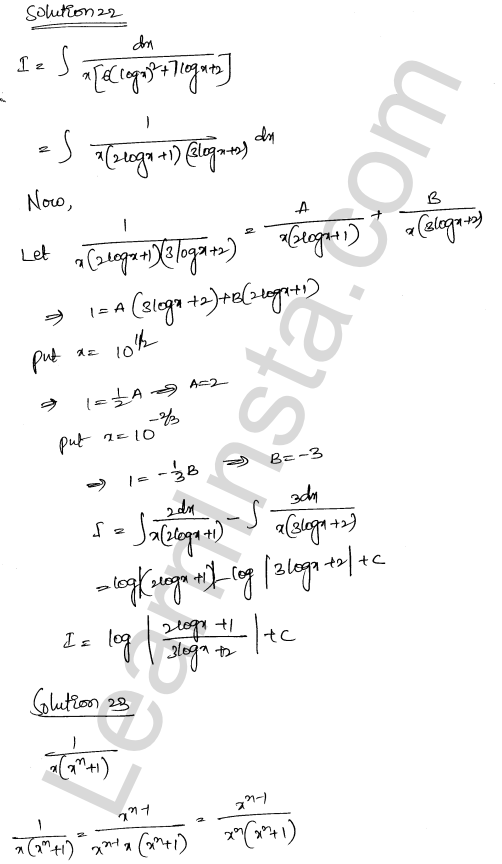 Solution 22
I = ∫ dx / x[6(logx)²+7logx+2]
= ∫ 1 / x(2logx+1)(3logx+2) dx
Now,
Let 1 / x(2logx+1)(3logx+2) = A / x(2logx+1) + B / x(3logx+2)
⇒ 1 = A(3logx+2)+B(2logx+1)
put x = 10^1/2
⇒ 1 = 1/2 A ⇒ A=2
put x = 10^-2/3
⇒ 1 = -1/3 B ⇒ B=-3
I = ∫ 2dx / x(2logx+1) - ∫ 3dx / x(3logx+2)
= log|(2logx+1)| - log|3logx+2| + C
I = log | 2logx+1 / 3logx+2 | + C
Solution 23
1 / x(xⁿ+1)
1 / x(xⁿ+1) = xⁿ⁻¹ / xⁿ⁻¹ x (xⁿ+1) = xⁿ⁻¹ / xⁿ(xⁿ+1)
LearnInsta.com